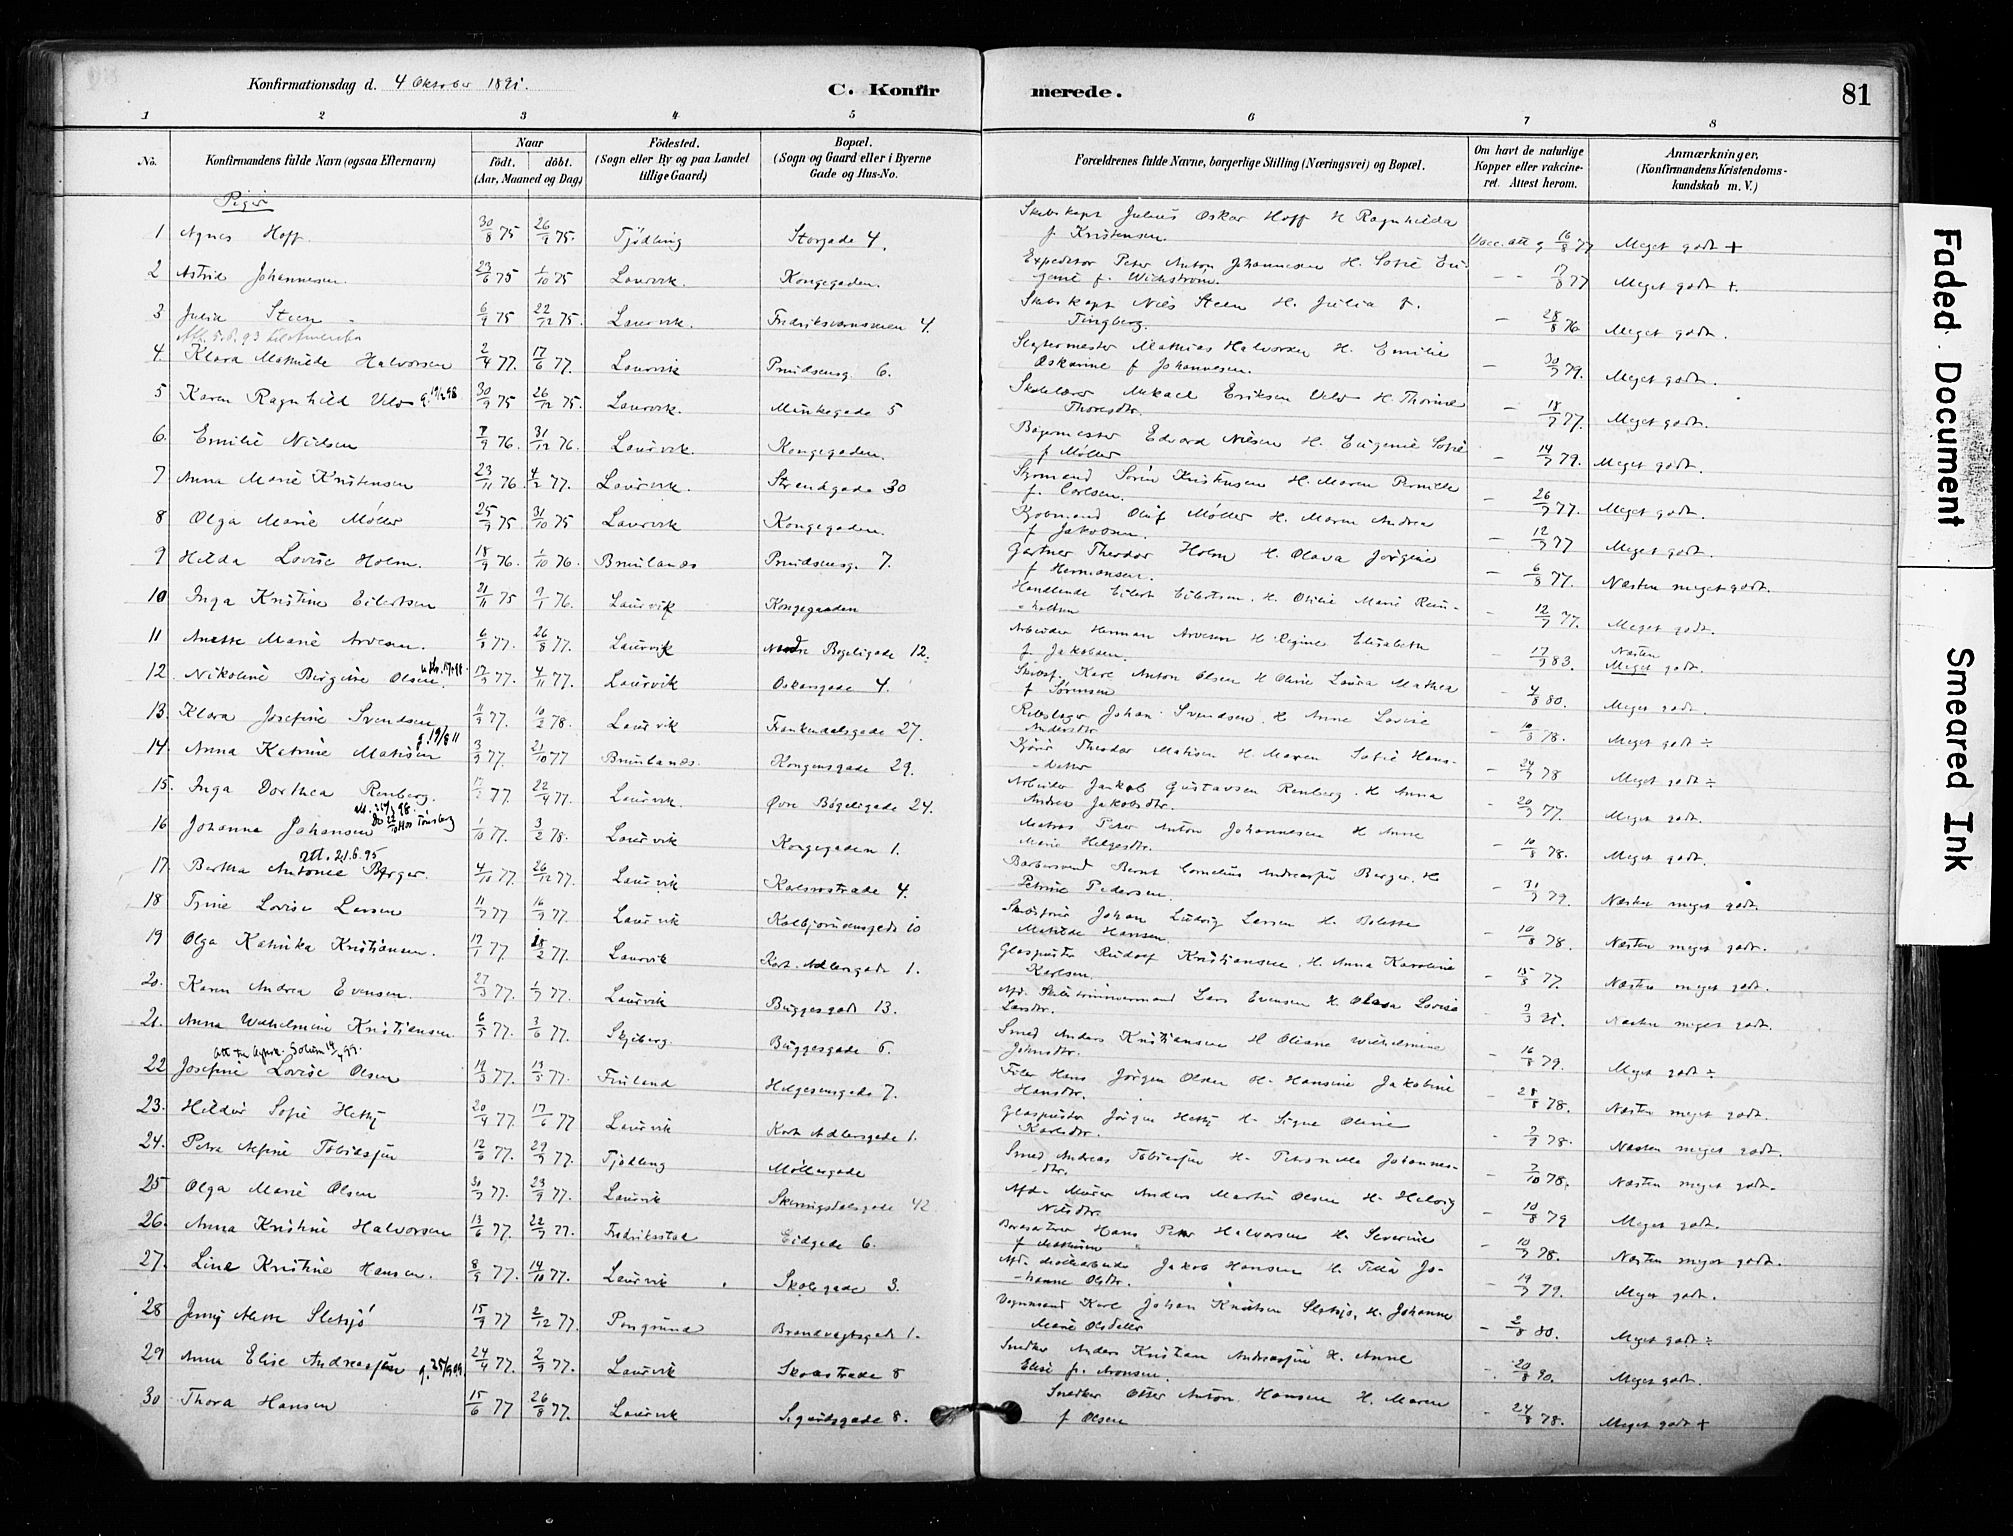 Konfirmationsdag d. 4 Oktober 1891.
C. Konfirmerede.
81
1 2 3 4 5 6 7 8
No.
Konfirmandens fulde Navn (ogsaa Efternavn)
Naar
født. døbt.
(Aar, Maaned og Dag)
Fødested.
(Sogn eller By og paa Landet
tillige Gaard)
Bopæl.
(Sogn og Gaard eller i Byerne
Gade og Hus-No.
Forældrenes fulde Navne, borgerlige Stilling (Næringsvei) og Bopæl.
Om havt de naturlige
Kopper eller vakcine-
ret. Attest herom.
Anmærkninger.
(Konfirmandens Kristendoms-
kundskab m. V.)
Piger
1 Agnes Hoff. 30/8 75 26/9 75. Tjødling Storgade 4. Skibskapt Julius Oskar Hoff H Ragnhilda f Kristensen. Vacc. att 16/8 77 Meget godt +
2 Astrid Johannesen. 23/6 75 1/10 75 Laurvik. Kongegaden. Expeditør Peter Anton Johannesen H. Sofie Eugenie f. Wichstrøm. - 17/8 77 Meget godt +.
3 Julia Steen 6/9 75 22/12 75. Laurvik. Fredriksværnsveien 4. Skibskapt Nils Steen H. Julia f. Tingberg. - 28/8 76 Meget godt.
4. Klara Mathilde Halvorsen 2/4 77. 17/6 77. Laurvik Prindsensg. 6. Slagtermester Mathias Halvorsen H. Emilie Oskarine f Johannesen. - 30/7 79. Meget godt.
5 Karen Ragnhild Ulv 30/9 75 26/12 75. Laurvik. Munkegade 5 Skolelærer Mikael Eriksen Ulv H. Thorine Thoresdtr. - 18/7 77. Meget godt.
6. Emilie Nielsen 7/9 76. 31/12 76. Laurvik. Kongegaden. Bagermester Edvard Nilsen H. Eugenie Sofie f Møller - 14/7 79. Meget godt.
7 Anna Marie Kristensen 23/11 76 4/2 77. Laurvik. Strandgade 30 Styrmand Søren Kristensen H. Maren Pernille f. Carlsen. - 26/7 77. Meget godt.
8 Olga Marie Møller 25/9 75 31/10 75 Laurvik Kongegaden. Kjøbmand Oluf Møller H. Maren Andrea f Jakobsen. - 12/7 77 Meget godt.
9 Hilda Lovise Holm. 18/9 76. 1/10 76. Brunlanæs Prindsensg. 7. Gartner Theodor Holm H. Olava Jørgine f Hermansen. - 6/8 77. Næsten meget godt.
10 Inga Kristine Eilertsen 21/11 75 9/1 76. Laurvik Kongegaden Handlende Eilert Eilertsen. H. Otilie Marie Reinholtsen - 12/7 77. Meget godt.
11 Anette Marie Arvesen. 6/7 77. 26/8 77. Laurvik Nedre Bøgeligade 12. Arbeider Herman Arvesen H Regine Elisabeth f. Jakobsen. - 17/7 83. Næsten Meget godt.
12. Nikoline Birgine Olsen. 17/7 77. 4/11 77. Laurvik Oskarsgade 4. Skibsf. Karl Anton Olsen H Oline Laura Mathea f Sørensen - 4/8 80. Meget godt.
13. Klara Josefine Svendsen 11/9 77. 10/2 78. Laurvik Frankendalsgade 27. Rebslager Johan Svendsen. H Anne Lovise Andersdtr. - 10/8 78. Meget godt ÷
14. Anna Katrine Matisen 3/9 77. 21/10 77 Brunlanæs. Kongensgade 29. Theodor Matisen H. Maren Sofie Hansdatter - 24/7 78 Meget godt ÷
15. Inga Dorthea Renberg. 77 22/4 77. Laurvik. Øvre Bøgeligade 24. Arbeider Jakob Gustavsen Renberg. H Anna Andrea Jakobsdtr. - 20/7 77. Meget godt.
16 Johanna Johansen 1/10 77. 3/2 78. Laurvik Kongegaden 1. Matros Peter Anton Johannesen H Anne Marie Helgesdtr. - 10/8 78. Meget godt.
att. 21.6.95
17. Bertha Antonie Berger. 4/10 77. 26/12 77. Laurvik Karlsrostræde 4. Barbersvend Bernt Cornelius Andreassen Berger. H Petrine Pedersen. - 31/7 79. Næsten meget godt.
18 Trine Lovise Larsen 11/7 77 16/9 77. Laurvik Kolbjørnsensgade 10 Johan Ludvig Larsen H. Bolette Matilde Hansen. - 10/8 78. Næsten meget godt.
19 Olga Katinka Kristiansen. 17/1 77. 18/2 77. Laurvik Kort. Adlersgade 1. Glaspuster Rudolf Kristiansen. H. Anna Karoline Karlsen. - 15/8 77. Næsten meget godt.
20. Karen Andrea Evensen. 27/3 77. 1/7 77. Laurvik Buggesgade 13. Afd. Skibstømmermand Lars Evensen H. Olava Lovise Larsdtr. - Næsten meget godt.
21. Anna Wilhelmine Kristiansen 6/5 77. 3/6 77. Skjeberg. Buggesgade 6. Smed Anders Kristiansen H Oliane Wilhelmine Johnsdtr. - 16/8 79. Meget godt ÷
22 Josefine Lovise Olsen 19/3 77. 13/5 77. Finland Helgesensgade 7. Filer Hans Jørgen Olsen H. Hansine Jakobine Hansdtr. - 28/8 78. Næsten meget godt.
23. Hildur Sofie Hetty 20/4 77. 17/6 77 Laurvik Kort Adlersgade 1. Glaspuster Jørgen Hetty H. Signe Oline Karlsdtr. - 2/9 78. Næsten meget godt.
24. Petra Alfine Tobiassen 12/6 77. 29/7 77. Tjødling Møllergade Smed Andreas Tobiassen H. Petronelle Johannesdtr. - 7/10 78. Næsten meget godt.
25 Olga Marie Olsen 31/7 77. 23/9 77. Laurvik Skiringsdalsgade 42 Afd. Murer Anders Martin Olsen H. Helvig Nilsdtr. - 10/8 79 Meget godt.
26. Anna Kristine Halvorsen 13/6 77. 22/7 77. Fredriksstad Eidgade 6. Hans Peter Halvorsen H. Severine f Mathisen - 10/7 78. Næsten meget godt.
27. Lina Kristine Hansen. 8/9 77. 14/10 77. Laurvik Skolegade 3. Afd. Jakob Hansen H. Johanne Olsdtr. - 19/7 79. Meget godt.
28 Jenny Alette Sletsjø 15/9 77. 2/12 77. Porsgrund Brandvagtsgade 1. Vognmand Karl Johan Knutsen Sletsjø, H. Johanne Marie Olsdatter - 2/8 80. Meget godt ÷
29 Anna Elise Andreassen 24/4 77. 2/9 77. Laurvik Skostræde 8 Snedker Anders Kristian Andreassen H. Anne Elise f. Aronsen. - 20/8 90. Meget godt.
30 Thora Hansen 15/6 77 26/8 77. Laurvik Sigurdsgade 8. Snedker Otter Anton Hansen H. Maren f Olsen - 24/8 78. Meget godt +
Faded Document
Smeared Ink